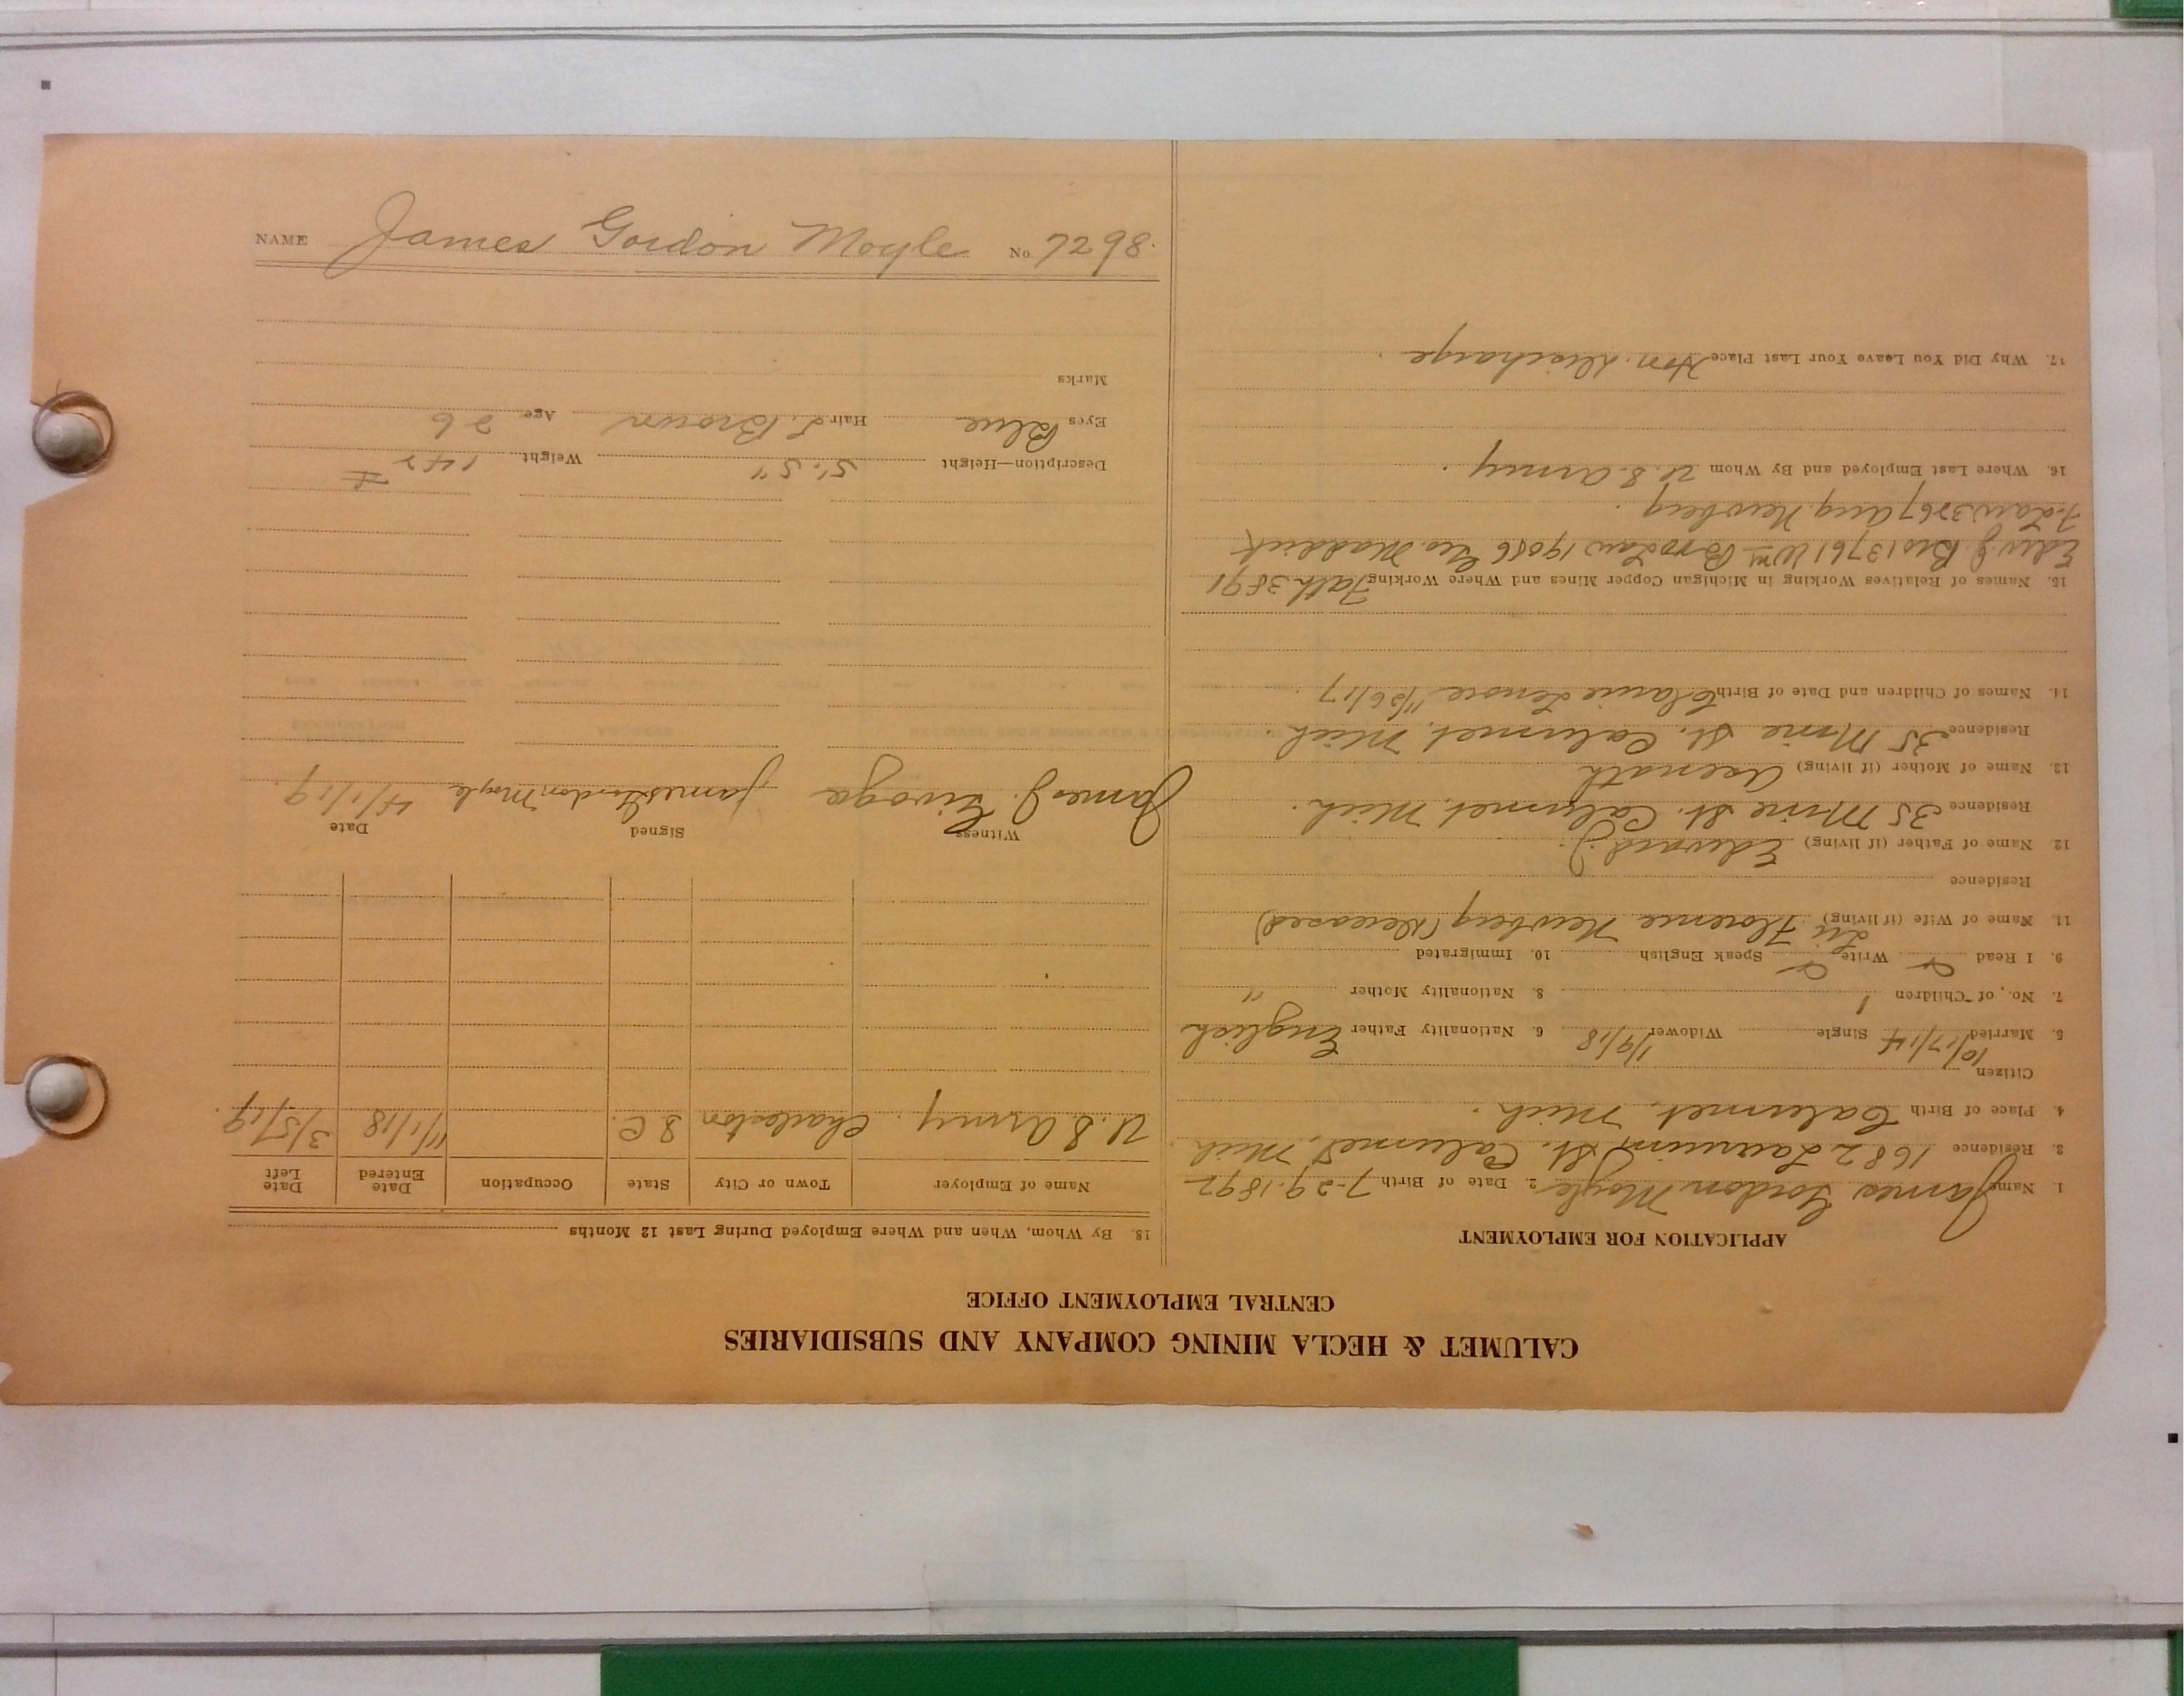 CALUMET & HECLA MINING COMPANY AND SUBSIDIARIES
CENTRAL EMPLOYMENT OFFICE
APPLICATION FOR EMPLOYMENT
1. Name James Gordon Moyle 2. Date of Birth 7-29-1892
3. Residence 1682 Laurium St. Calumet, Mich.
4. Place of Birth Calumet, Mich.
Citizen
5. Married 10/17/14 Single Widower 1/9/18 6. Nationality Father English
7. No. of Children 1 8. Nationality Mother "
9. I Read Write Speak English 10. Immigrated
11. Name of Wife (if living) Florence Newberg (Deceased)
Residence
12. Name of Father (if living) Edward J.
Residence 35 Mine St. Calumet, Mich.
13. Name of Mother (if living) Asenath
Residence 35 Mine St. Calumet, Mich.
14. Names of Children and Date of Birth Lenore 11/26/17
15. Names of Relatives Working in Michigan Copper Mines and Where Working Fath. 3891
Edw. J. Bro 13761 Wm Bro Law 19086 Geo. Maddick
F. Law 3267 Aug. Newberg
16. Where Last Employed and By Whom U.S. Army
17. Why Did You Leave Your Last Place Hon. Discharge
18. By Whom, When and Where Employed During Last 12 Months
Name of Employer Town or City State Occupation Date Entered Date Left
U.S. Army. Charleston S.C. 11/1/18 3/5/19.
Witness Signed Date
James J. James Gordon Moyle 4/1/19.
Description—Height 5'.5" Weight 142 #
Eyes Blue Hair L. Brown Age 26
Marks
NAME James Gordon Moyle No. 7298.